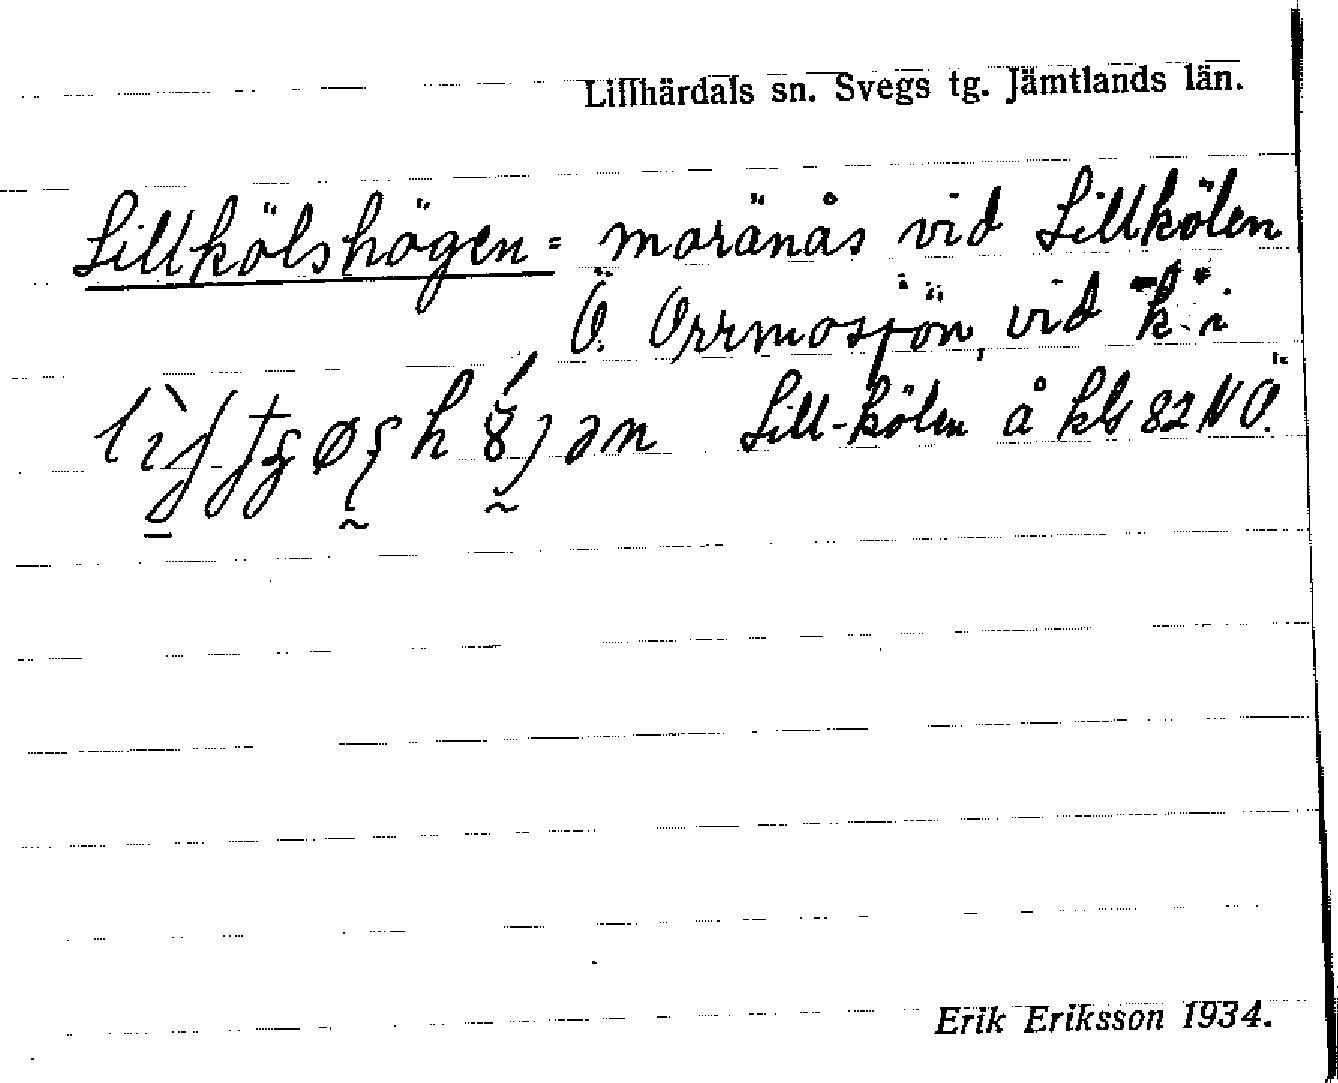 Lillhärdals sn. Svegs tg. Jämtlands län.
Lillkölshögen = moränås vid Lillkölen
Ö. Orrmosjön, vid k i
Lill-kölen å kbl 82 NÖ.
Erik Eriksson 1934.